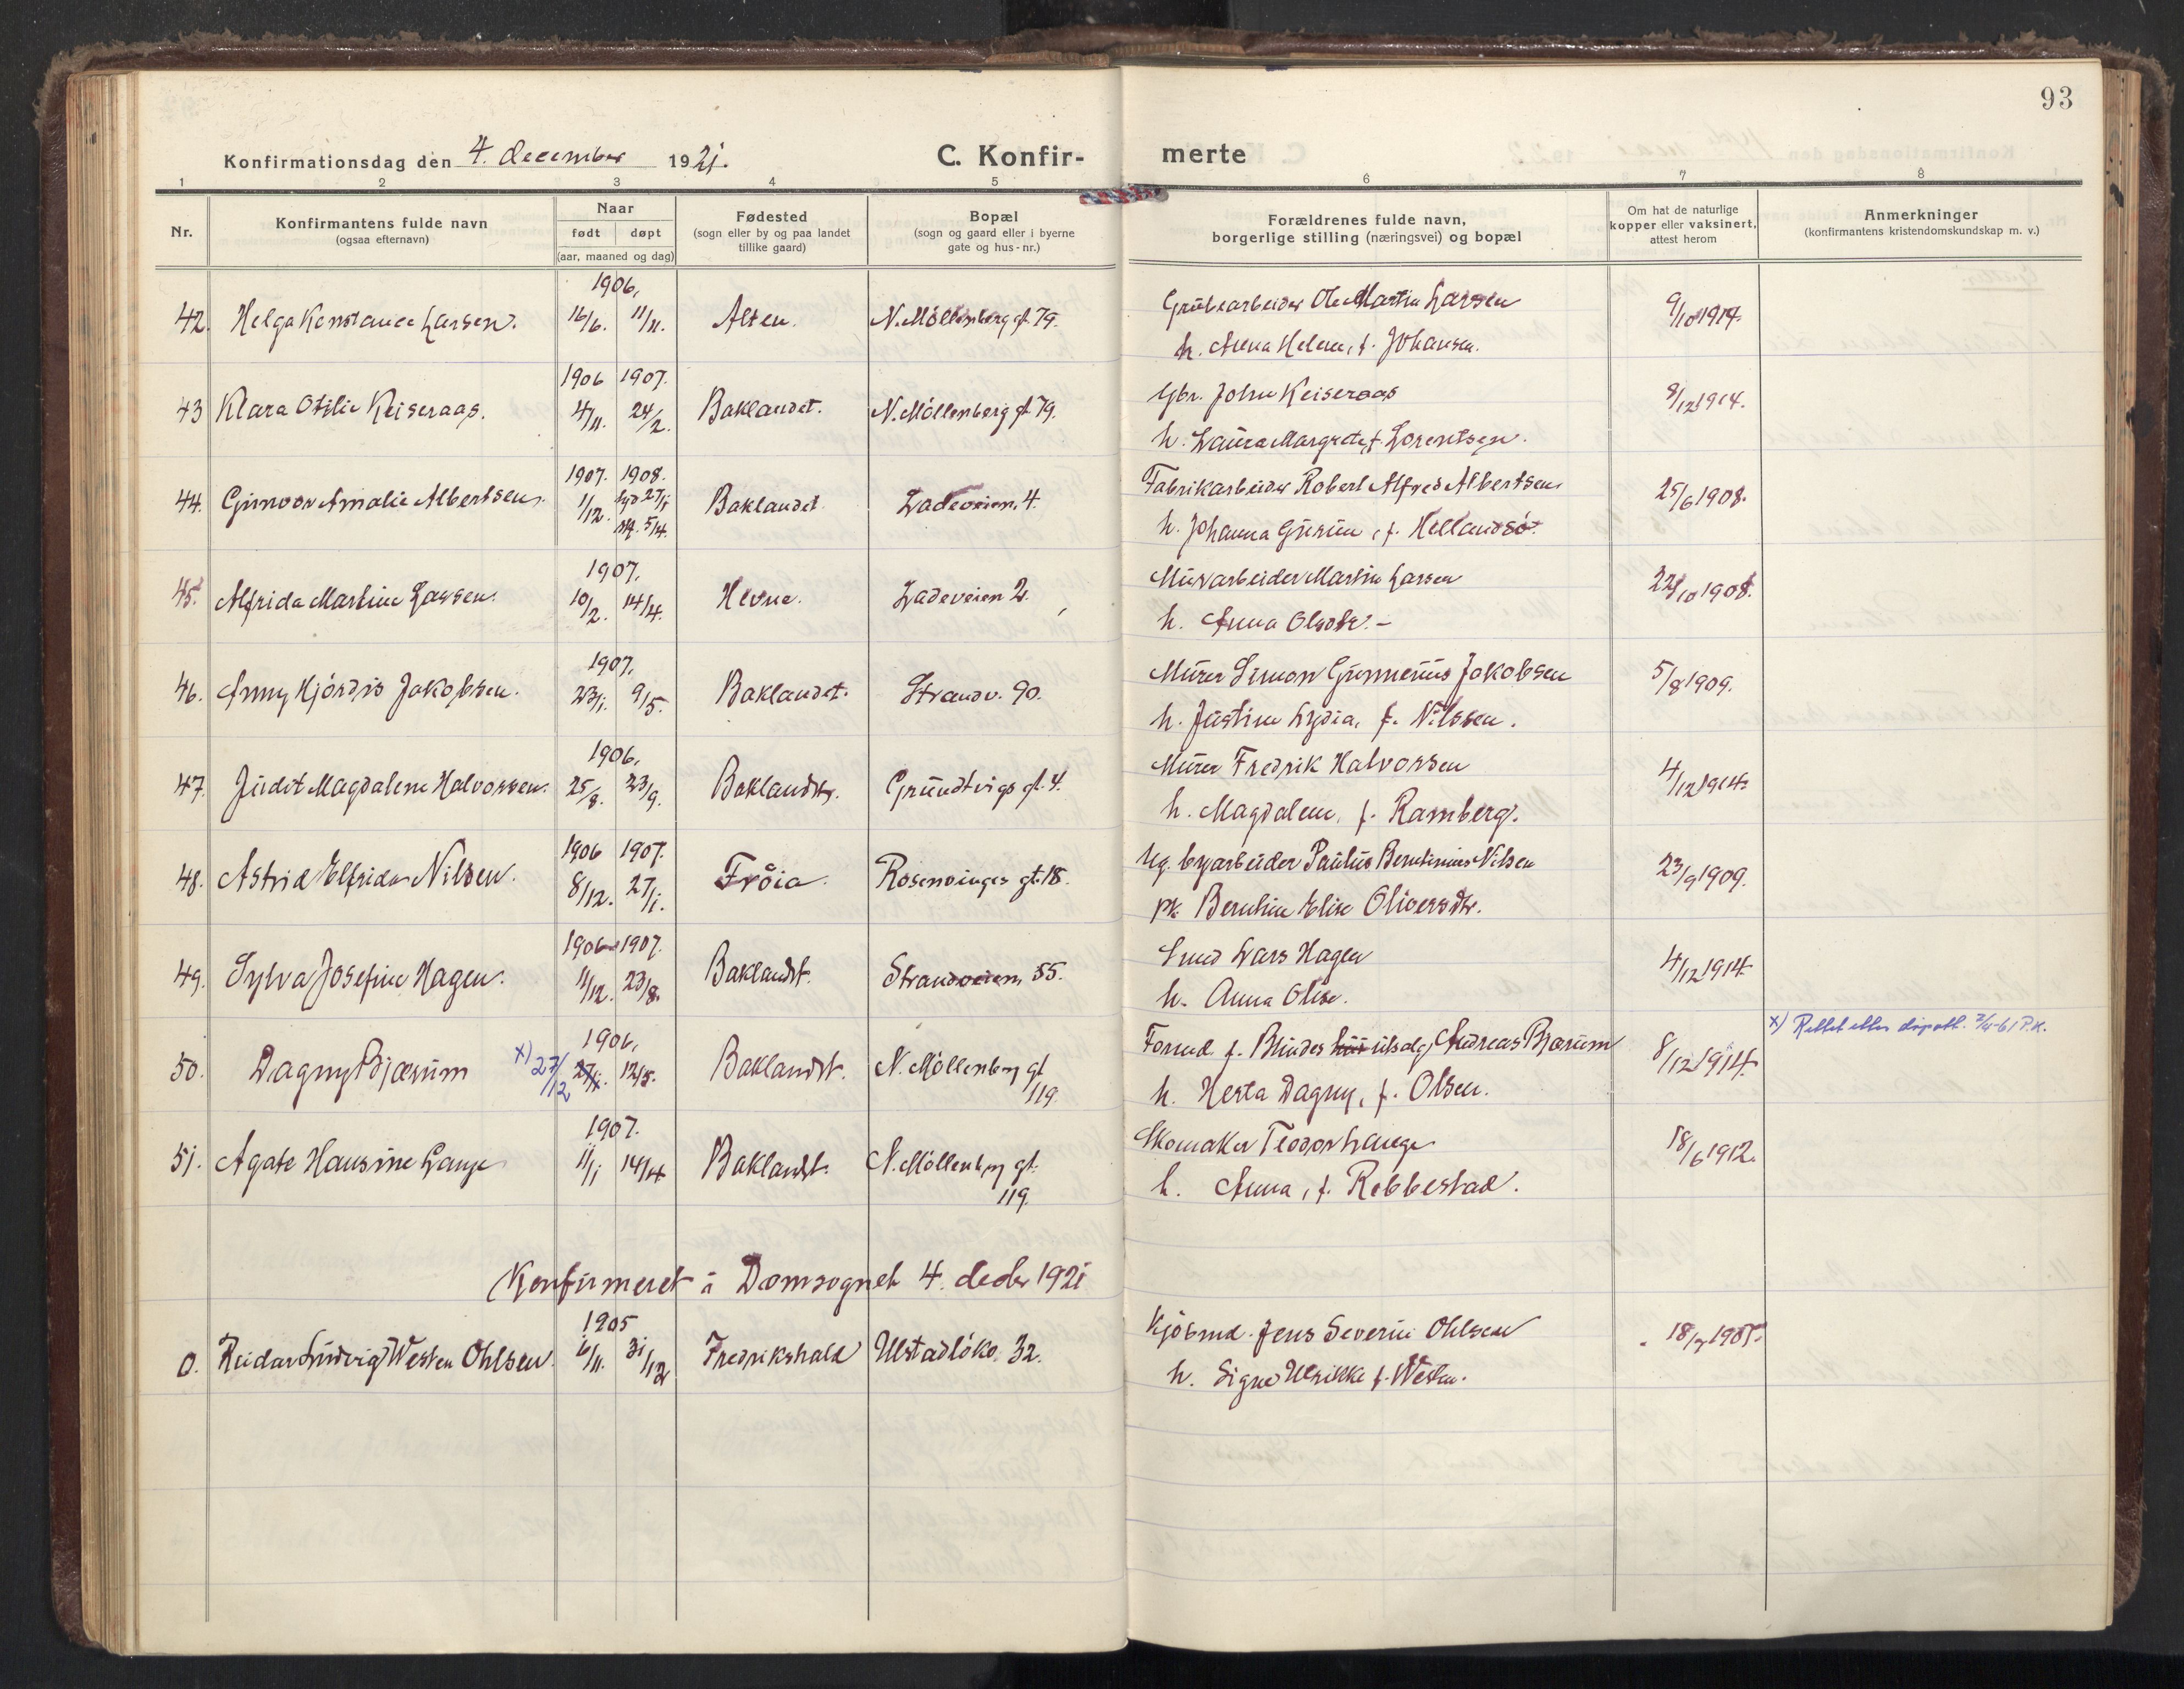 93
Konfirmationsdag den 4. december 1921. C. Konfir- merte
1 2 3 4 5 6 7 8
Nr. Konfirmantens fulde navn (ogsaa efternavn) Naar født døpt (aar, maaned og dag) Fødested (sogn eller by og paa landet tillike gaard) Bopæl (sogn og gaard eller i byerne gate og hus-nr.) Forældrenes fulde navn, borgerlige stilling (næringsvei) og bopæl Om hat de naturlige kopper eller vaksinert, attest herom Anmerkninger (konfirmantens kristendomskundskap m. v.)
1906,
42. Helga Konstance Larsen. 16/6. 11/11. Alten. N. Möllenberg gt. 79. Grubearbeider Ole Martin Larsen 9/10 1914.
h. Anna Helene, f. Johansen.
1906 1907.
43 Klara Otilie Keiseraas. 4/11. 24/2. Baklandet. N. Möllenberg gt. 79. Gbr. John Keiseraas 8/12 1914.
h. Laura Margrete, f. Lorentsen.
1907. 1908.
44. Gunvor Amalie Albertsen. 1/12. 27/1 5/4. Baklandet Ladeveien, 4. Fabrikarbeider Robert Alfred Albertsen 25/6 1908.
h. Johanna Gurine, f. Hellandsö.
1907.
45. Alfrida Martine Larsen. 10/2. 14/4. Hevne. Ladeveien 2. Murarbeider Martin Larsen 22/10 1908.
h. Anna Olsdtr. –
1907.
46. Anny Hjördis Jakobsen. 23/1. 9/5. Baklandet. Strandv. 90. Murer Simon Gunnerius Jakobsen 5/8 1909.
h. Justine Lydia, f. Nilssen.
1906,
47. Judit Magdalene Halvorsen. 25/8. 23/9. Baklandet. Grundtvigs gt. 4. Murer Fredrik Halvorsen 4/12 1914.
h. Magdalene, f. Ramberg.
1906 1907.
48. Astrid Elfrida Nilsen. 8/12. 27/1. Fröia. Rosenvinges gt. 18. Ug. byarbeider Paulus Berntinius Nilsen 23/9 1909.
pk. Berntine Elise Oliversdtr.
1906 1907.
49. Sylva Josefine Hagen. 11/12. 23/8. Baklandt. Strandveien, 55. Smed Lars Hagen 4/12 1914
h. Anna Olise.
1906,
50. Dagny Bjærum x) 27/12 27/1. 12/5. Baklandt. N. Möllenberg gt 119. Forend. f. Blindes utsalg, Andreas Bjærum 8/12 1914. x) Rettet etter dåpsatt. 7/4-61 P.K.
h. Herta Dagny, f. Olsen.
1907.
51. Agate Hansine Lange 11/1 14/4 Baklandt. N. Möllenberg gt. 119. Skomaker Teodor Lange 18/6 1912.
h. Anna, f. Rebbestad.
Konfirmeret i Domsognet 4. decbr 1921
1905
0. Reidar Ludvig Westen Ohlsen. 6/11. 31/12 Fredrikshald Ulstadlökv. 32. Kjöbmd. Jens Severin Ohlsen 18/7 1905.
h. Signe Ulrikke f. Westen.